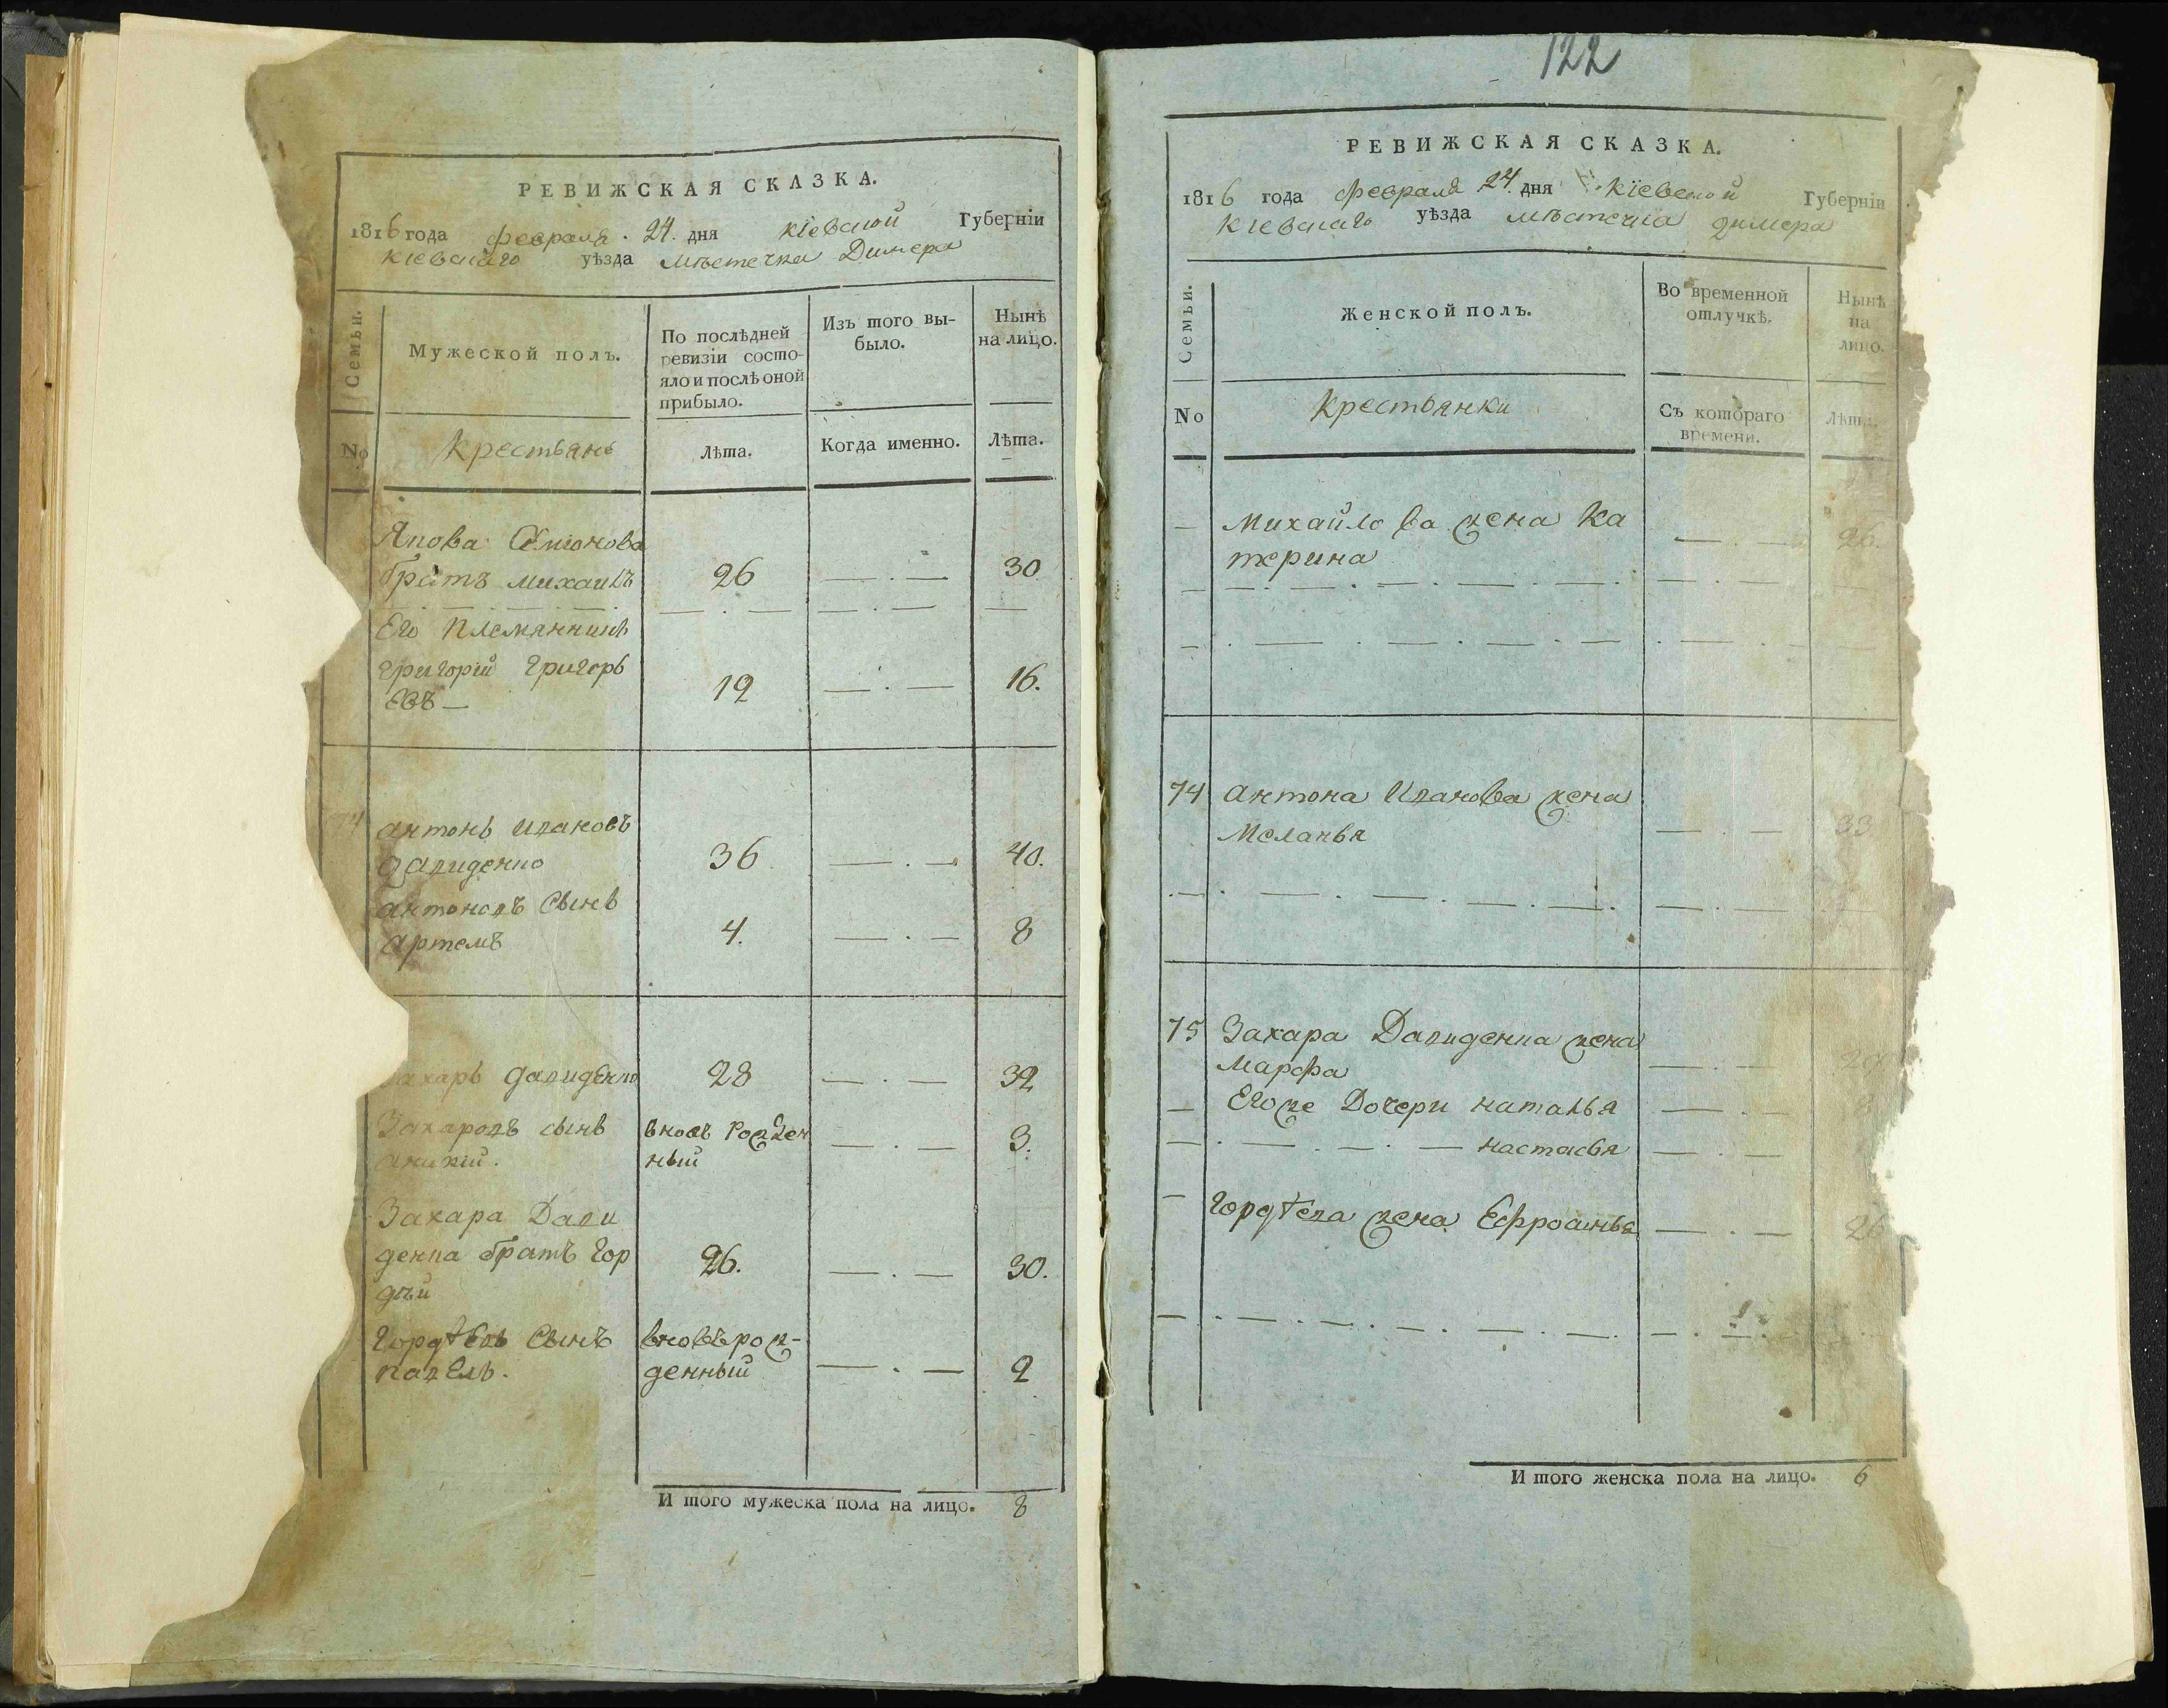 РЕВИЖСКАЯ СКАЗКА.
1816 года февраля 24. дня кіевской Губерніи
кіевскаго уѣзда мѣстечка Димера
Семьи.
Мужеской полъ.
По послѣдней
ревизіи состо-
яло и послѣ оной
прибыло.
Изъ того вы-
было.
Нынѣ
на лицо.
No
крестьянъ
Лѣта.
Когда именно.
Лѣта.
Якова Семіонова
братъ михаилъ 26 30
Его племянникъ
григорій григорь
евъ 12 16.
74 антонъ ивановъ
давиденко 36 40.
антоновъ сынъ
артемъ 4. 8
захаръ давиденко 28 32
Захаровъ сынъ вновь рожден
ный 3.
Захара Дави
денка братъ гор
дѣй 26. 30.
гордѣевъ сынъ вновъ рож-
павелъ. денный 2
И того мужеска пола на лицо. 8
122
РЕВИЖСКАЯ СКАЗКА.
1816 года февраля 24. дня кіевской Губерніи
кіевскаго уѣзда мѣстечка димера
Семьи.
Женской полъ.
Во временной
отлучкѣ.
Нынѣ
на
лицо.
No
крестьянки
Съ котораго
времени.
Лѣта.
михайлова жена ка
терина 26.
74 антона иванова жена
меланья 33
75 Захара Давиденка жена
марфа
Его же Дочери наталья
настасья
гордѣева жена Ефросинья 26
И того женска пола на лицо. 6